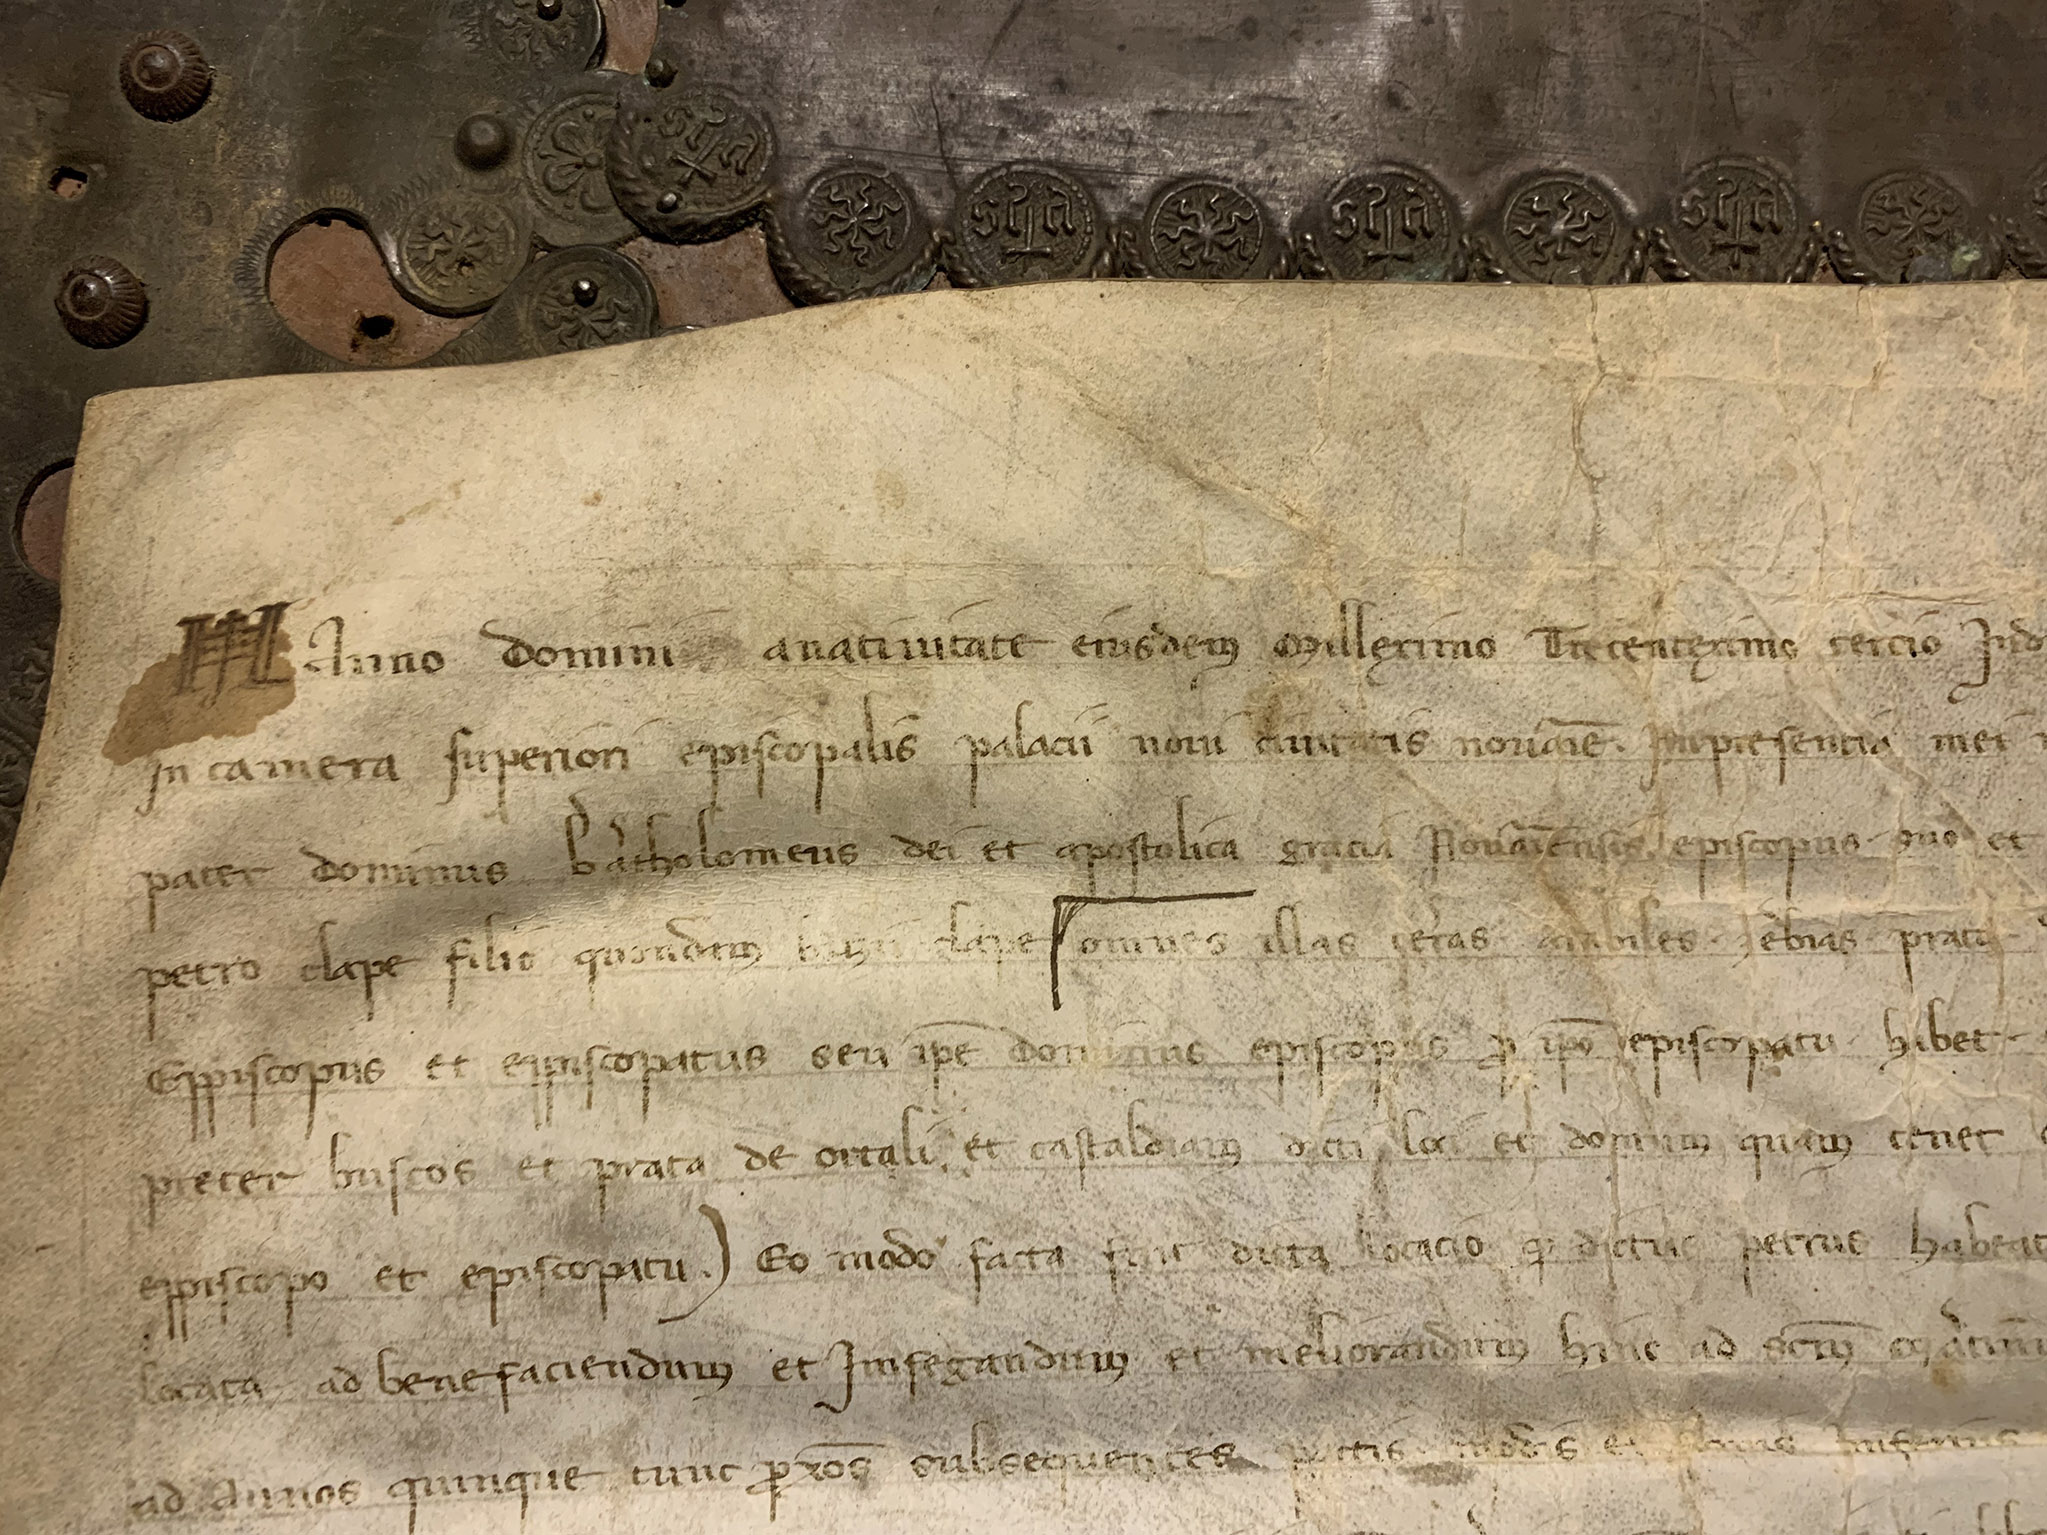 Anno domini anativitate eiusdem Milleximo Trecenteximo tercio Ind
in camera superiori episcopalis palacii novi civitatis novarie. Inpresentia mei
pater dominus bartholomeus dei et apostolica gracia Novariensis episcopus suo et
petro clape filio quondam clape omnes illas terras arabiles zerbias prata
Eppiscopus et eppiscopatus seu ipe dominus episcopus p ipo episcopatu habet
preter buscos et prata de ortali et castaldiam dicti loci et domum quam tenet
eppiscopo et episcopatu.) Eo modo facta fuit dicta locacio q dictus petrus habeat
locata ad bene faciendum et Imfegandum et meliorandum hinc ad scm martinu
ad Annos quinque tunc proxos subsequentes pactis modis et formis Inferius